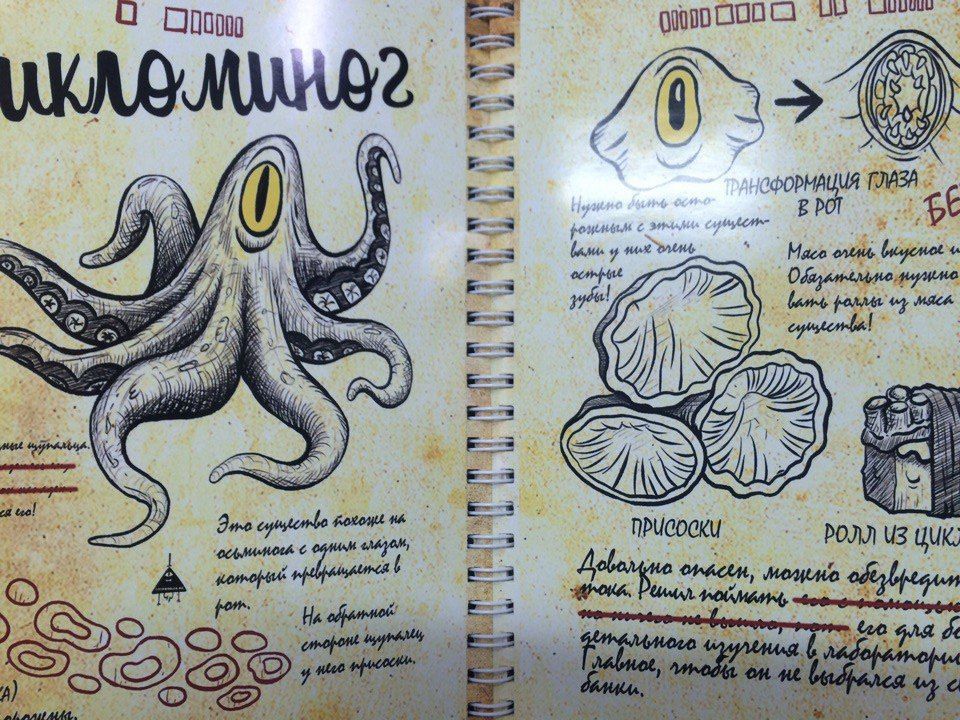 икломиног
ные щупальца.
ся его!
Это существо похоже на
осьминога с одним глазом,
который превращается в
рот.
На обратной
стороне щупалец
у него присоски.
КА)
орожены.
ТРАНСФОРМАЦИЯ ГЛАЗА
В РОТ
Нужно быть осто-
рожным с этими сущест-
вами у них очень
острые
зубы!
БЕ
Мясо очень вкусное и
Обязательно нужно
вать роллы из мяса
существа!
ПРИСОСКИ
РОЛЛ ИЗ ЦИКЛ
Довольно опасен, можно обезвредит
тока. Решил поймать его с помощью
но ничего не вышло, его для бо
детального изучения в лаборатори
Главное, чтобы он не выбрался из с
банки.